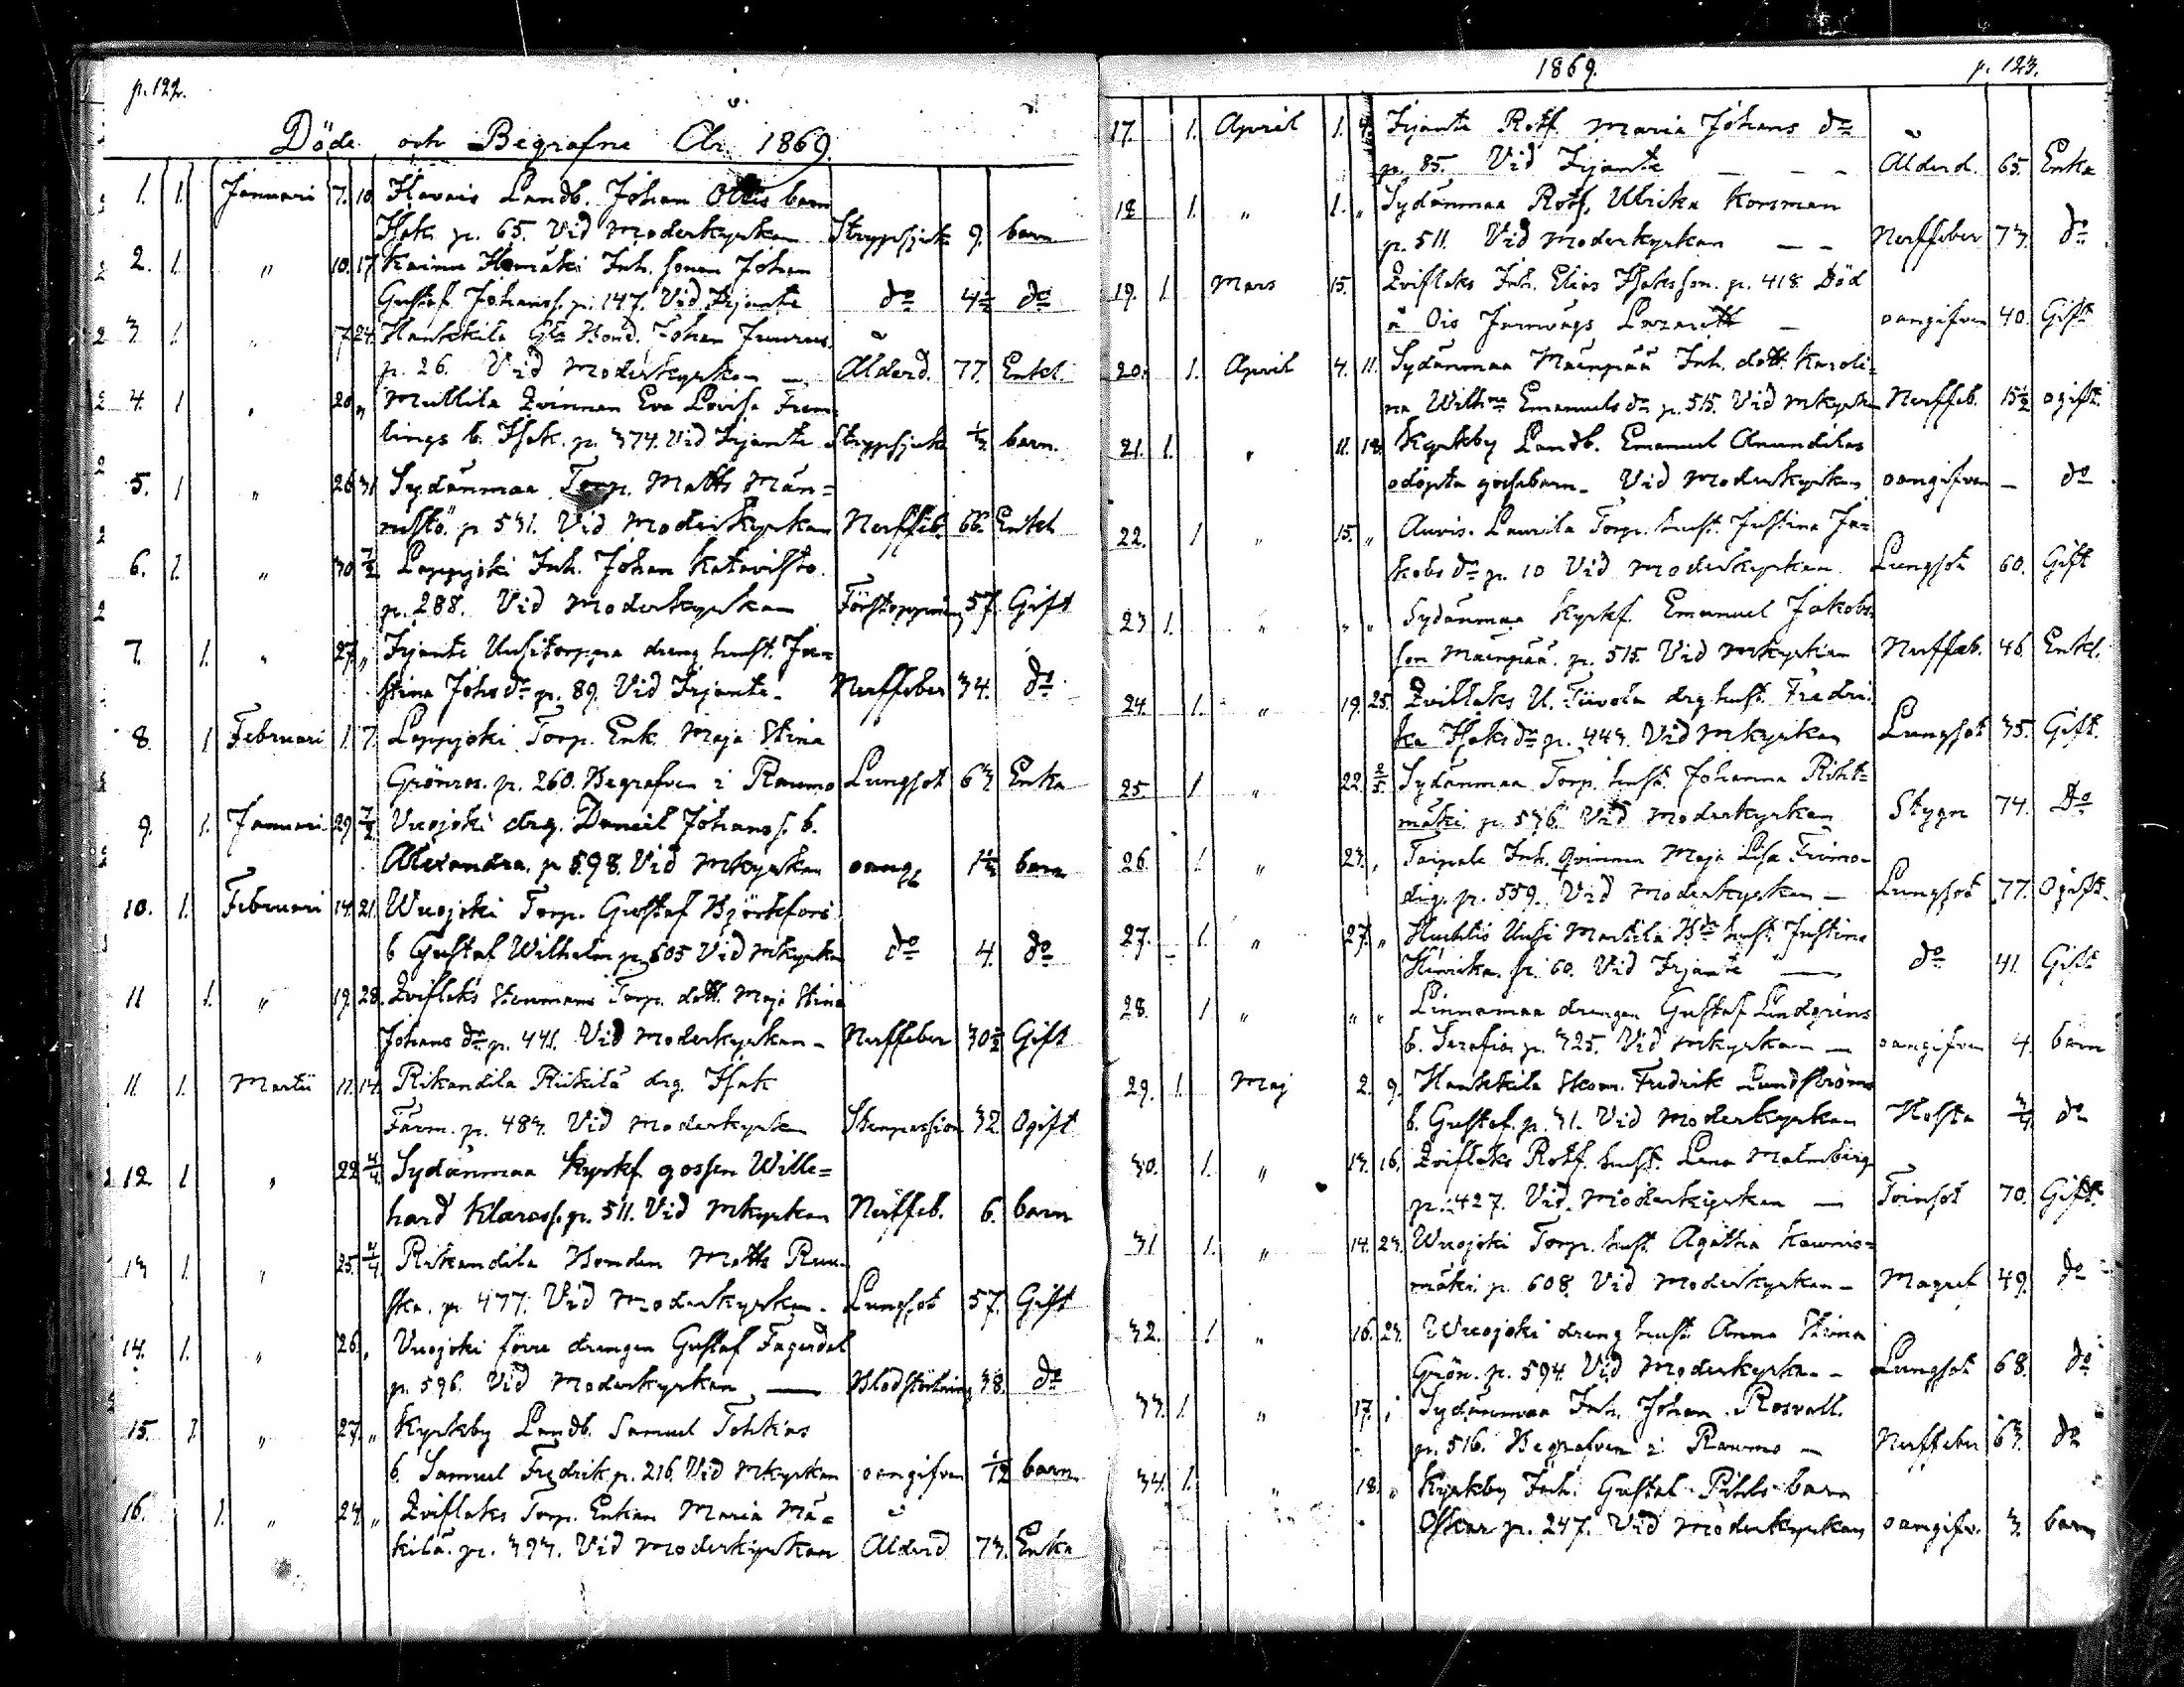 p. 122.
Döde och Begrafne År 1869.
1. 1. Januari 7. 10. Havais Landb. Johan Ollis barn
Isak p. 65. Vid Moderkyrkan Strypsjuka 9. barn
2. 1. " 10. 17 Inh. sonen Johan
Gustaf Johanss. p. 147. Vid Irjante do 4½ do
3 1. " 17 24. Hankkila Gla Bond. Johan
p. 26. Vid Moderkyrkan — Ålderd. 77. Enkl.
4. 1 " 20 " Mullila Qvinnan Eva Lovisa Frem-
lings b. Isak. p. 374. Vid Irjante Strypsjuka ⅓ barn.
5. 1 " 26 31 Sydänmaa Torp. Matts Män-
nistö. p 531. Vid Moderkyrkan Nerffeb. 66. Enkl
6. 1. " 30 7/2 Lappijoki Inh. Johan Katavisto.
p. 288. Vid Moderkyrkan Förstoppning 57. Gift
7. 1. " 27 " Irjante Uusitorppa dreng hust. Ju-
stina Johs dr p. 89. Vid Irjante. Nerffeber 34. do
8. 1 Februari 1. 7. Lappjoki Torp. Enk. Maja Stina
Grönros. p. 260. Begrafven i Raumo Lungsot 63 Enka
9. 1. Januari 29 7/2 Vuojoki drg. Daniel Johanss. b.
Alexandra. p 598. Vid Mkyrkan oang barn
10. 1. Februari 14. 21. Wuojoki Torp. Gustaf Björkfors
b Gustaf Wilhelm p. 605 Vid Mkyrkan do 4. do
11 1. " 19. 28. Qviflaks Stenmans Torp. dott. Maja Stina
Johans dr p. 441. Vid Moderkyrkan - Nerffeber 30½ Gift
11. 1. Martii 11. 14. Rikandila Riikilä drg. Isak
Färm. p. 483. Vid Moderkyrkan 32. Ogift
12 1 " 22 4/4 Sydänmaa Kyrkf. gossen Wille-
hard Klaross. p. 511. Vid Mkyrkan Nerffeb. 6. barn
13 1. " 25. 4/4 Rikandila Bonden Matts Ruu-
ska. p 477. Vid Moderkyrkan. Lungsot 57. Gift
14. 1. " 26. " Vuojoki förre drengen Gustaf Fagerdal
p. 596. Vid Moderkyrkan — Blodstörtning 38. do
15. 1 " 27. " Kyrkby Landb. Samuel Tohkias
b. Samuel Fredrik p. 216. Vid Mkyrkan oangifven 1/12 barn
16. 1. " 24. " Qviflaks Torp. Enkan Maria Mä-
kilä. p. 393. Vid Moderkyrkan Ålderd 73. Enka
1869. p. 123.
17. 1. April 1. 4. Irjante Rotf. Maria Johans dr
p. 85. Vid Irjante — — — Ålderd. 65. Enka
18 1. " 1. " Sydänmaa Rotf. Ulrika Korsman
p. 511. Vid Moderkyrkan — — Nerffeber 73. do
19. 1 Mars 15. Qviflaks Inh. Elias Isaksson. p. 418. Död
å Ois Jernvägs Lazarett — oangifven 40. Gift
20. 1. April 4. 11. Sydänmaa Mäenpää Inh. dott. Karoli-
na Wilhna Emanuels dr p. 515. Vid Mkyrkn Nerffeb. 15½ ogift.
21. 1. " 11. 18. Kyrkby Landb. Emanuel Anundilas
odöpta gossebarn. Vid Moderkyrkan oangifven — do
22. 1 " 15. " Auvis. Laurila Torp. hust. Justina Ja-
kobs dr p. 10 Vid Moderkyrkan. Lungsot 60. Gift
23 1. " " " Sydänmaa Kyrkf. Emanuel Jakobs-
son Mäenpää. p. 515. Vid Mkyrkan Nerffeb. 46. Enkl.
24. 1. " 19. 25. Qviflaks U. Tiivola drg hust. Fredri-
ka Isaks dr p. 443. Vid Mkyrkan Lungsot 35. Gift.
25. 1 " 22. 2/5 Sydänmaa Torp. hust. Johanna Riht-
mäki p. 536. Vid Moderkyrkan Stygn 74. Do
26. 1. " 23. " Taipale Inh. Qvinnan Maja Lisa Frimo-
dig. p. 559. Vid Moderkyrkan — Lungsot 77. Ogift.
27. 1. " 27. " Huhtis Uusi Martila Bde hust. Justina
Hinrika. p. 60. Vid Irjante — do 41. Gift
28. 1 " " " Linnamaa drengen Gustaf Lindgrens
b. Serafia p. 325. Vid Mkyrkan — oangifven 4. barn
29. 1. Maj 2. 9. Hankkila Skom. Fredrik Lundströms
b. Gustaf. p. 31. Vid Moderkyrkan Hosta ¾ do
30. 1. " 13. 16. Qviflaks Rotf. hust. Lena Malmberg
p. 427. Vid Moderkyrkan — Tvinsot 70. Gift.
31 1. " 14. 23. Wuojoki Torp. hust. Agatha Kaunis-
mäki p. 608. Vid Moderkyrkan — Magref 49. do
32. 1 " 16. 23. Wuojoki dreng hust. Anna Stina
Grön. p. 594. Vid Moderkyrka - Lungsot 68. do
33. 1. " 17. " Sydänmaa Inh. Johan Rosvall.
p. 516. Begrafven i Raumo — Nerffeber 63. do
34. 1. " 18. " Kyrkby Inh. Gustaf Pihls barn
Oskar p. 247. Vid Moderkyrkan oangifv. 3. barn